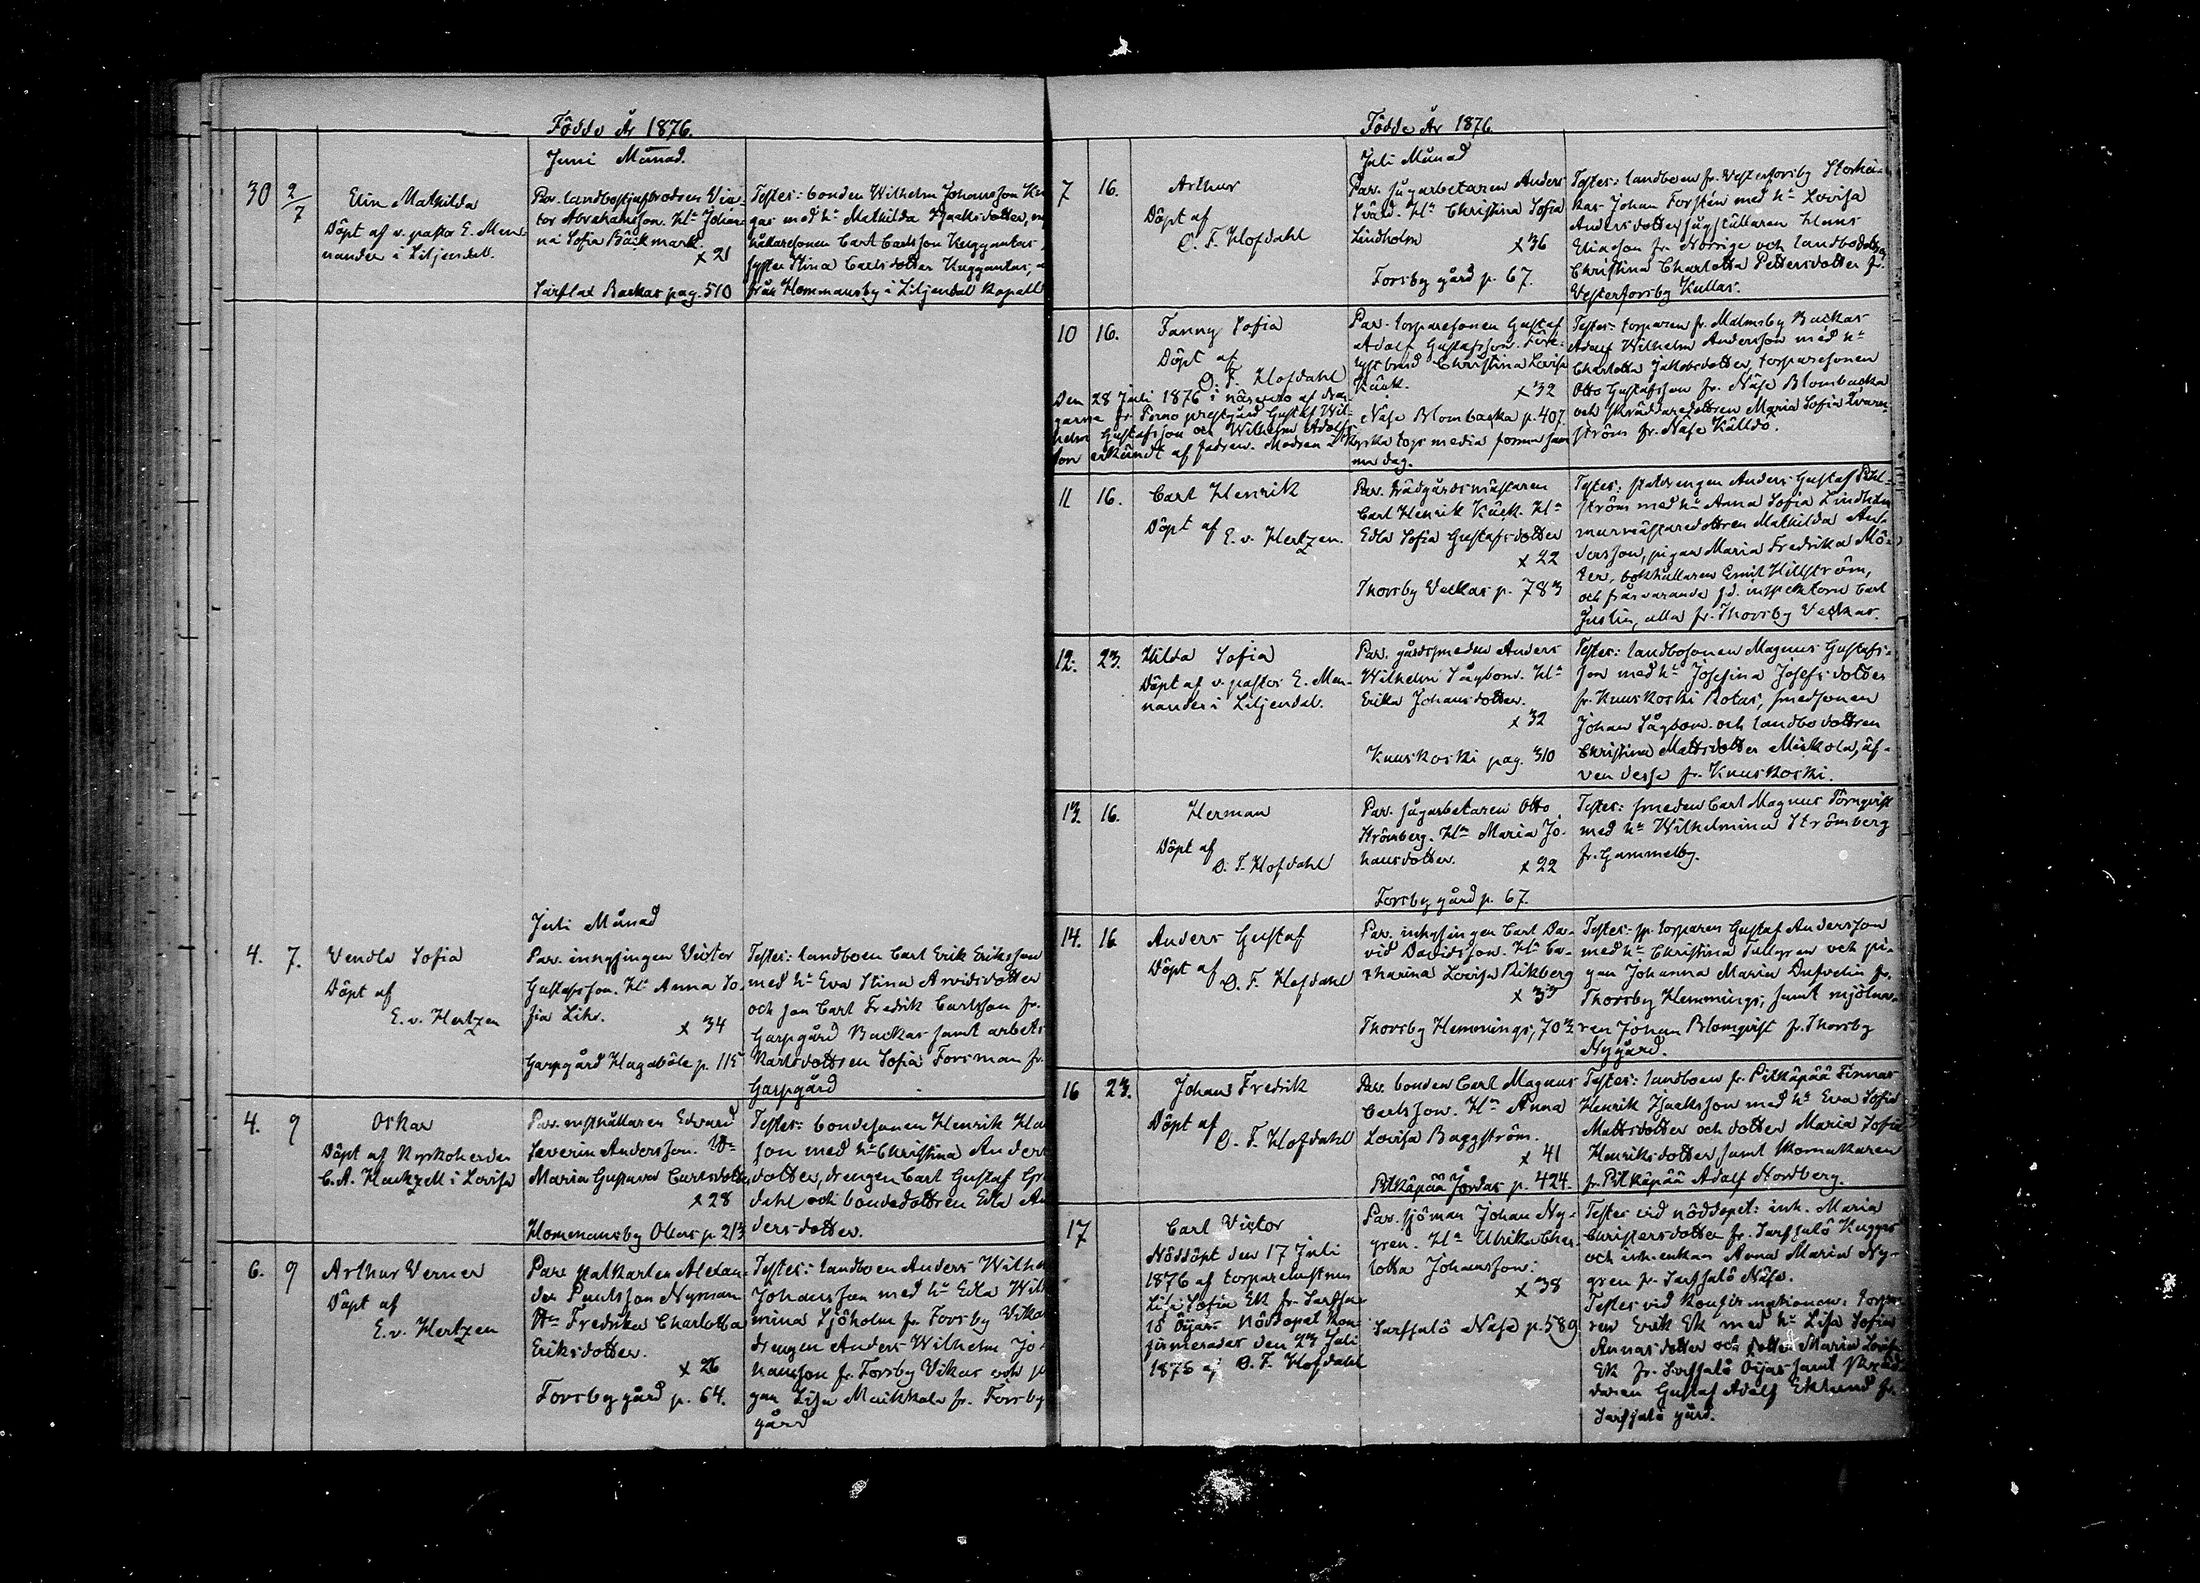 Födde År 1876.
Juni Månad.
30 2/7
Elin Mathilda
Döpt af v. pastor E. Men-
nander i Liljendal.
Par. landbostjufbrodren Vic-
tor Abrahamsson. H:u Johan-
na Sofia Bäckmark.
x 21
Sarflax Backas pag. 510
Testes: bonden Wilhelm Johansson
gas med h:u Mathilda Isacksdotter,
hållaresonen Carl Carlsson Kuggantas
syster Stina Carlsdotter Kuggantas,
från Hommansby i Liljendal Kapell
Juli Månad
4. 7.
Vendla Sofia
Döpt af
E. v. Hertzen
Par. inhysingen Victor
Gustafsson. H:u Anna So-
fia Lihr.
x 34
Garpgård Hagaböle p. 115
Testes: landboen Carl Erik Eriksson
med h:u Eva Stina Arvidsdotter
och son Carl Fredrik Carlsson fr.
Garpgård Backas samt arbets-
karlsdottren Sofia Forsman fr.
Garpgård
4. 9
Oskar
Döpt af Kyrkoherden
C. A. Hackzell i Lovisa
Par. Edvard
Severin Andersson. H:u
Maria Gustava Carlsdotter
x 28
Hommansby Olars p. 213
Testes: bondesonen Henrik
son med h:u Christina Anders-
dotter, drengen Carl Gustaf
dahl och bondedottren Edla An-
dersdotter.
6. 9
Arthur Verner
Döpt af
E. v. Hertzen
Par. statkarlen Alexan-
der Nyman
H:u Fredrika Charlotta
Eriksdotter.
x 26
Forsby gård p. 64.
Testes: landboen Anders Wilhelm
Johansson med h:u Edla Wil
mina Sjöholm fr. Forsby Vikas
drengen Anders Wilhelm Jo-
hansson fr. Forsby Vikas och pi-
gan Lisa Maikkala fr. Forsby
gård
Födde År 1876
Juli Månad
7 16.
Arthur
Döpt af
O. F. Hofdahl
Par. sågarbetaren Anders
Svärd. H:u Christina Sofia
Lindholm
x 36
Forsby gård p. 67.
Testes: landboen fr. Vesterforsby Storhin-
kas Johan Forstén med h:u Lovisa
Andersdotter, sågställaren Hans
Eliasson fr. Norrige och landbodottren
Christina Charlotta Pettersdotter fr.
Vesterforsby Kullas.
10 16.
Fanny Sofia
Döpt af
O. F. Hofdahl
Den 28 Juli 1876 i närvaro af dren-
garne fr. Perno prestgård Gustaf Wil-
helm Gustafsson och Wilhelm Adolfs-
son erkändt af fadren. Modren kyrkotogs media forma sam-
ma dag.
Par. torparesonen Gustaf
Adolf Gustafsson. Före-
lystbrud Christina Lovisa
Käck.
x 32
Näse Blombacka p. 407.
Testes: torparen fr. Malmsby Backas
Adolf Wilhelm Andersson med h:u
Charlotta Jakobsdotter, torparesonen
Otto Gustafsson fr. Näse Blombacka
och skräddaredottren Maria Sofia Qvarn-
ström fr. Näse Källdo.
11 16.
Carl Henrik
Döpt af
E. v. Hertzen.
Par. trädgårdsmästaren
Carl Henrik Käck. H:u
Edla Sofia Gustafsdotter
x 22
Thorsby Veckas p. 783
Testes: staldrengen Anders Gustaf Pihl-
ström med h:u Anna Sofia Lindholm
murmästaredottren Mathilda An-
dersson, pigan Maria Fredrika Mö-
ter, bokhållaren Emil Hillström,
och frånvarande f.d. inspektoren Carl
Justin, alla fr. Thorsby Veckas.
12. 23.
Hilda Sofia
Döpt af v. pastor E. Men-
nander i Liljendal.
Par. gårdssmeden Anders
Wilhelm Sågbom. H:u
Erika Johansdotter.
x 32
Kuuskoski pag. 310
Testes: landbosonen Magnus Gustafs-
son med h:u Josefina Josefsdotter
fr. Kuuskoski Rotas, smedsonen
Johan Sågbom och landbodottren
Christina Mattsdotter Mickola, äf-
ven desse fr. Kuuskoski.
13. 16.
Herman
Döpt af
O. F. Hofdahl
Par. sågarbetaren Otto
Strömberg. H:u Maria Jo-
hansdotter.
x 22
Forsby gård p. 67.
Testes: smeden Carl Magnus Törnqvist
med h:u Wilhelmina Strömberg
fr. Gammelby.
14. 16
Anders Gustaf
Döpt af
O. F. Hofdahl
Par. inhysingen Carl Da-
vid Davidsson. H:u Ca-
tharina Lovisa Rikberg
x 33
Thorsby Hemmings, 703.
Testes: torparen Gustaf Andersson
med h:u Christina Tullgren och pi-
gan Johanna Maria Dufvelin fr.
Thorsby Hemmings, samt mjölna-
ren Johan Blomqvist fr. Thorsby
Nygård.
16 23.
Johan Fredrik
Döpt af
O. F. Hofdahl
Par. bonden Carl Magnus
Carlsson. H:u Anna
Lovisa Baggström.
x 41
Pitkäpää Jordas p. 424.
Testes: landboen fr. Pitkäpää Finnas
Henrik Isacksson med h:u Eva Sofia
Mattsdotter och dotter Maria Sofia
Henriksdotter, samt skomakaren
fr. Pitkäpää Adolf Nordberg.
17
Carl Victor
Nöddöpt den 17 Juli
1876 af torparehustrun
Lisa Sofia Ek fr. Sarfsa-
lö Öijars. Nöddopet kon-
firmerades den 23 Juli
1876 af O. F. Hofdahl
Par. sjöman Johan Ny-
gren. H:u Ulrika Char-
lotta Johansson.
x 38
Sarfsalö Näse p. 589
Testes vid nöddopet: inh. Maria
Christersdotter fr. Sarfsalö Kuggas
och inh. enkan Anna Maria Ny-
gren fr. Sarfsalö Näse.
Testes vid konfirmationen: torpa-
ren Erik Ek med h:u Lisa Sofia
Annasdotter och dotter Maria Lovisa
Ek fr. Sarfsalö Öijars samt skräd-
daren Gustaf Adolf Eklund fr.
Sarfsalö gård.